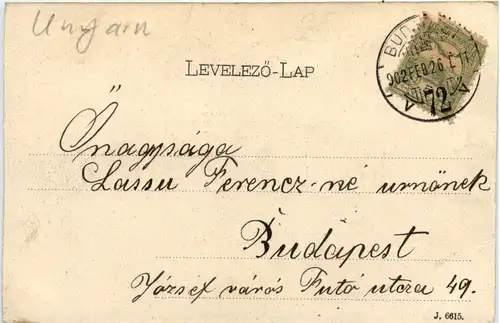 Ungarn
LEVELEZŐ-LAP
BUDAPEST
902 FEB. 26
72
Őnagysága
Lassu Ferencz-né urnőnek
Budapest
József város Futó utcza 49.
J. 6615.